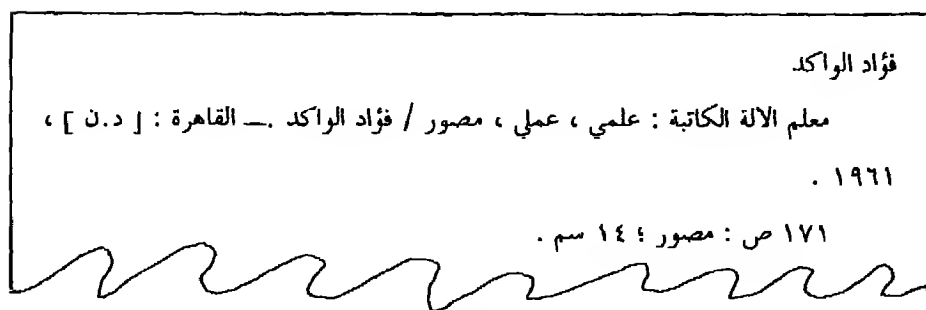 فؤاد الواكد
معلم الالة الكاتبة : علمي ، عملي ، مصور / فؤاد الواكد .ــ القاهرة : [ د.ن ] ،
١٩٦١ .
١٧١ ص : مصور ؛ ١٤ سم .